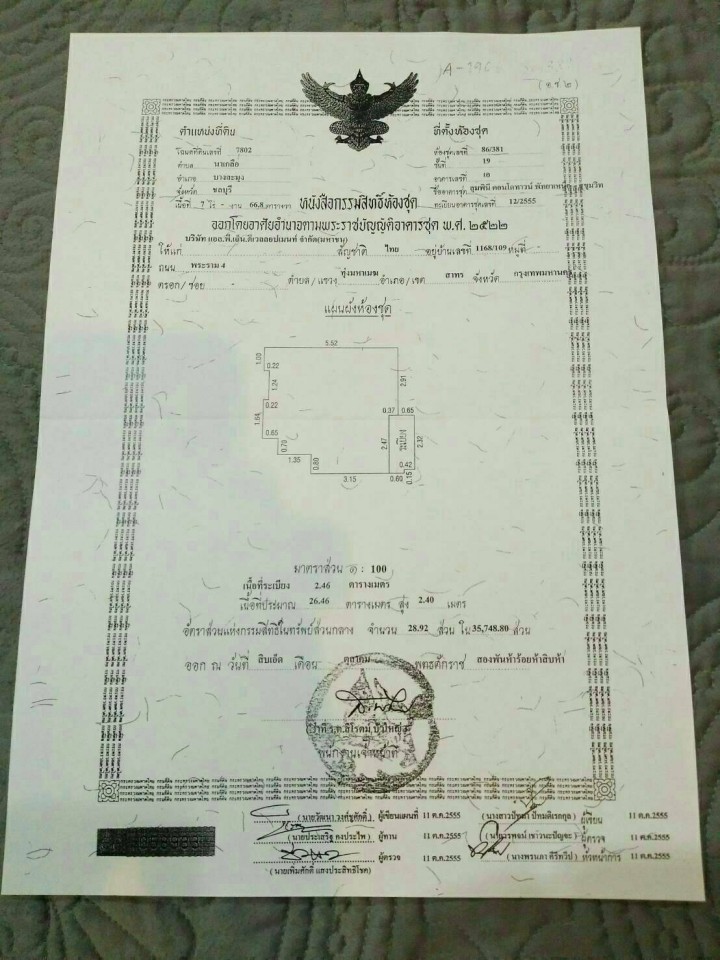 (อ.ช.๒)
ตำแหน่งที่ดิน
โฉนดที่ดินเลขที่ 7802
ตำบล นาเกลือ
อำเภอ บางละมุง
จังหวัด ชลบุรี
เนื้อที่ 7 ไร่ - งาน 66.8 ตารางวา
ที่ตั้งห้องชุด
ห้องชุดเลขที่ 86/381
ชั้นที่ 19
อาคารเลขที่
ชื่ออาคารชุด ลุมพินี คอนโดทาวน์ พัทยาเหนือ - สุขุมวิท
ทะเบียนอาคารชุดเลขที่ 12/2555
หนังสือกรรมสิทธิ์ห้องชุด
ออกโดยอาศัยอำนาจตามพระราชบัญญัติอาคารชุด พ.ศ. ๒๕๒๒
ให้แก่ บริษัท แอล.พี.เอ็น.ดีเวลลอปเมนท์ จำกัด(มหาชน) สัญชาติ ไทย อยู่บ้านเลขที่ 1168/109 หมู่ที่ -
ถนน พระราม 4
ตรอก/ซอย - ตำบล/แขวง ทุ่งมหาเมฆ อำเภอ/เขต สาทร จังหวัด กรุงเทพมหานคร
แผนผังห้องชุด
5.52
1.00
0.22
1.24
2.91
0.22
1.64
0.37 0.65
0.65
0.70
2.47
ระเบียง
2.32
1.35
0.80
0.42
0.15
3.15
0.60
มาตราส่วน ๑ : 100
เนื้อที่ระเบียง 2.46 ตารางเมตร
เนื้อที่ประมาณ 26.46 ตารางเมตร สูง 2.40 เมตร
อัตราส่วนแห่งกรรมสิทธิ์ในทรัพย์ส่วนกลาง จำนวน 28.92 ส่วน ใน 35,748.80 ส่วน
ออก ณ วันที่ สิบเอ็ด เดือน ตุลาคม พุทธศักราช สองพันห้าร้อยห้าสิบห้า
พนักงานเจ้าหน้าที่
ผู้เขียนแผนที่ 11 ต.ค.2555
ผู้เขียน 11 ต.ค.2555
ผู้ทาน 11 ต.ค.2555
ผู้ตรวจ 11 ต.ค.2555
ผู้ตรวจ 11 ต.ค.2555
หัวหน้าการ 11 ต.ค.2555
(นายเพิ่มศักดิ์ แสงประสิทธิโชค)